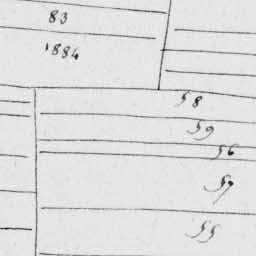 83
1884
58
59
56
57
55